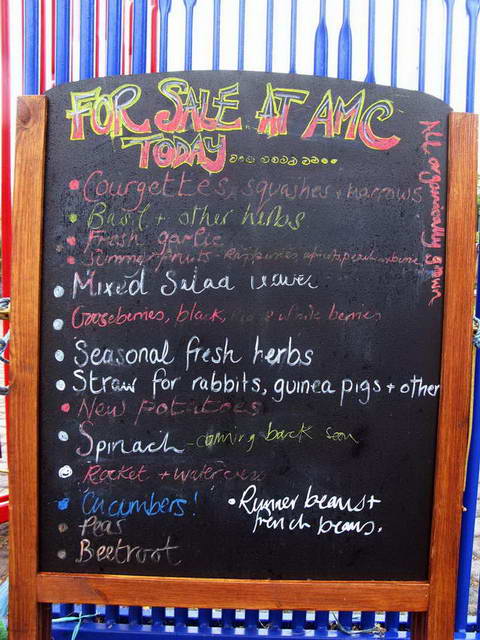 FOR SALE AT AMC
TODAY
All organically grown
Courgettes, squashes + marrows
Basil + other herbs
Fresh garlic
Summer fruits - Raspberries
Mixed Salad leaves
Gooseberries, black, Red & white berries
Seasonal fresh herbs
Straw for rabbits, guinea pigs + other
New Potatoes
Spinach - coming back soon
Rocket + watercress
Cucumbers!
Runner beans +
french beans.
Peas
Beetroot